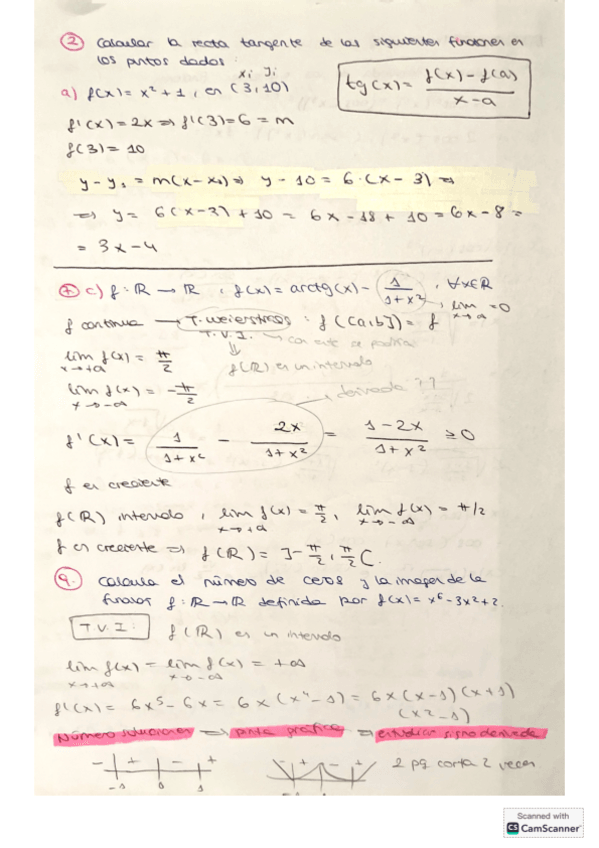 ② Calcular la recta tangente de las siguientes funciones en
los puntos dados:
x₁ y₁
a) f(x) = x² + 1, en (3, 10)
tg(x) = f(x) - f(a) / x - a
f'(x) = 2x ⇒ f'(3) = 6 = m
f(3) = 10
y - y₁ = m(x - x₁) ⇒ y - 10 = 6·(x - 3) ⇒
⇒ y = 6(x - 3) + 10 = 6x - 18 + 10 = 6x - 8 =
= 3x - 4
c) f: ℝ → ℝ, f(x) = arctg(x) - 1 / 1 + x², ∀x∈ℝ
lim = 0
f continua → T. Weierstrass: f([a,b]) = f
T.V.I. → con este se podría
lim f(x) = π/2
x → +∞
f(ℝ) es un intervalo
lim f(x) = -π/2
x → -∞
derivada ??
f'(x) = 1 / 1 + x² - 2x / 1 + x² = 1 - 2x / 1 + x² ≥ 0
f es creciente
f(ℝ) intervalo, lim f(x) = π/2, lim f(x) = π/2
x → +∞ x → -∞
f es creciente ⇒ f(ℝ) = ]-π/2, π/2[.
9. Calcula el número de ceros y la imagen de la
función f: ℝ → ℝ definida por f(x) = x⁶ - 3x² + 2.
T.V.I: f(ℝ) es un intervalo
lim f(x) = lim f(x) = +∞
x → +∞ x → -∞
f'(x) = 6x⁵ - 6x = 6x(x⁴ - 1) = 6x(x - 1)(x + 1)
(x² - 1)
Número soluciones ⇒ pinta gráfica ⇒ estudiar signo derivada
- + - + - + - + 2 pq corta 2 veces
-1 0 1 -1
Scanned with
CS CamScanner